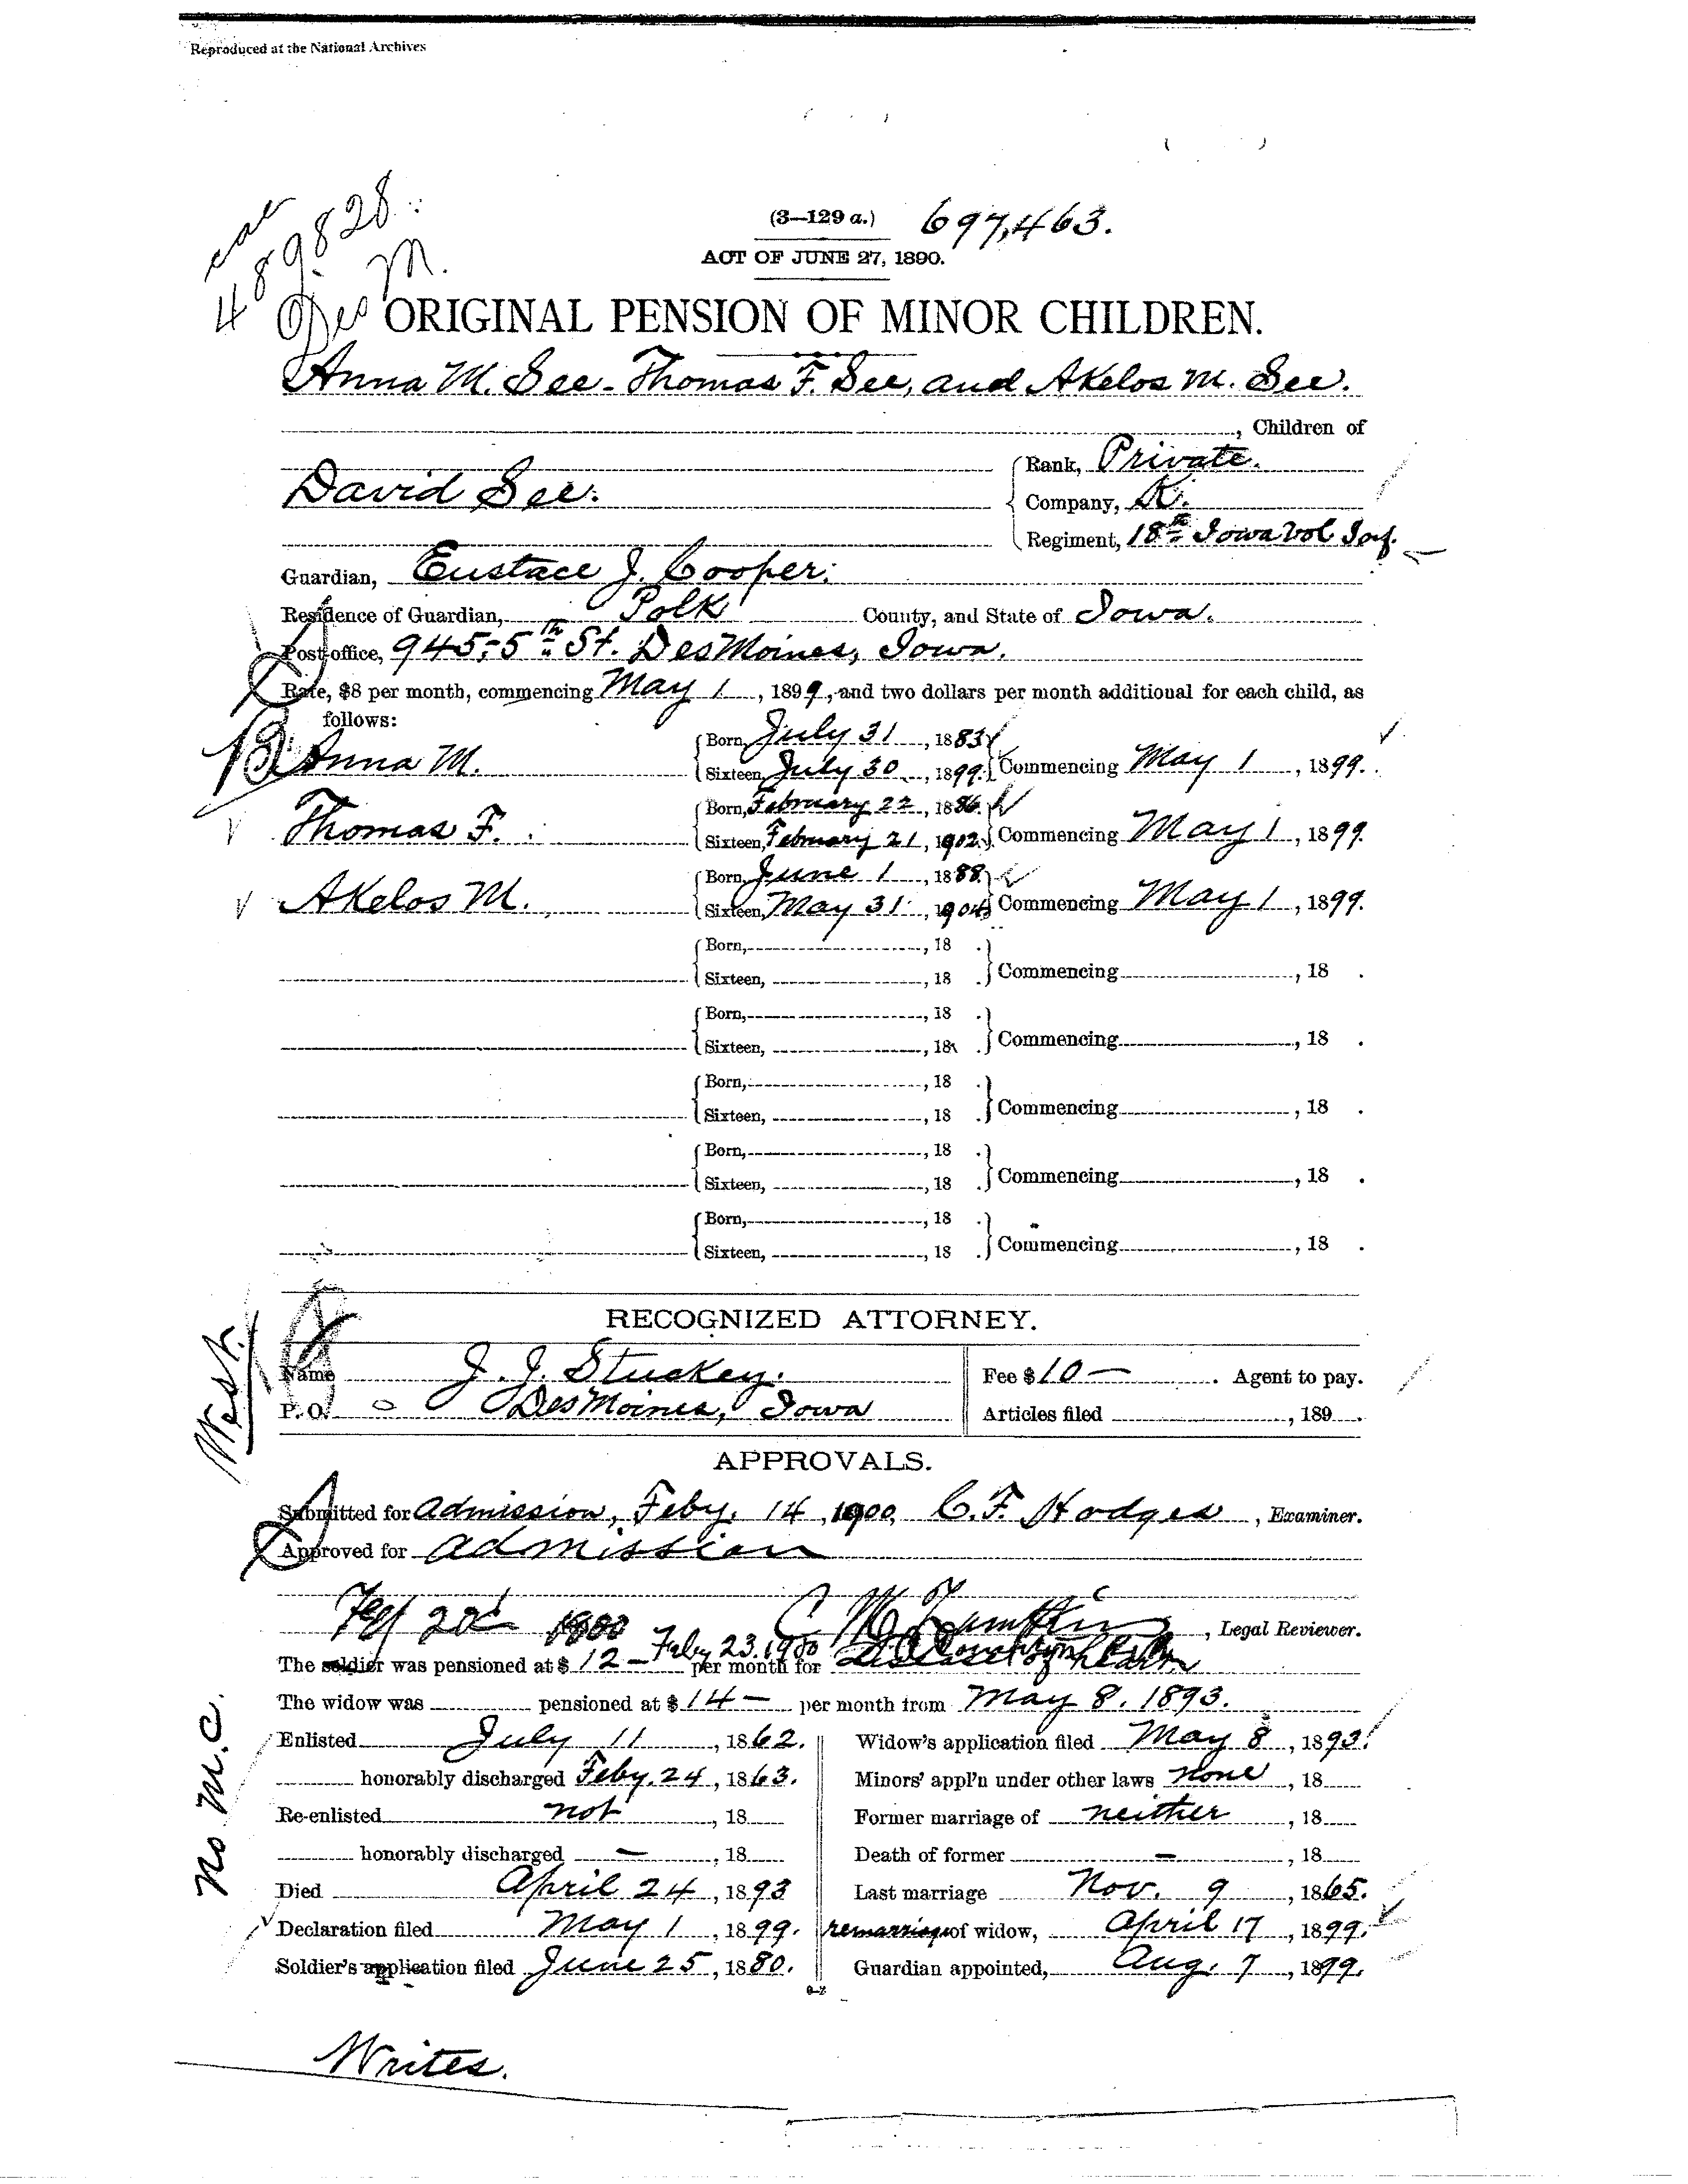 Reproduced at the National Archives
489828
(3—129 a.) 697,463.
ACT OF JUNE 27, 1890.
Des M.
ORIGINAL PENSION OF MINOR CHILDREN.
Anna M. See - Thomas F. See, and Akelos M. See.
, Children of
Rank, Private.
David See. Company, K.
Regiment, 18th Iowa Vol Inf.
Guardian, Eustace J. Cooper.
Residence of Guardian, Polk County, and State of Iowa.
Post-office, 945-5th St. Des Moines, Iowa.
Rate, $8 per month, commencing May 1, 1899, and two dollars per month additional for each child, as
follows:
Born, July 31, 1883
Anna M. Sixteen, July 30, 1899. Commencing May 1, 1899.
Born, February 22, 1886.
Thomas F. Sixteen, February 21, 1902. Commencing May 1, 1899.
Born, June 1, 1888.
Akelos M. Sixteen, May 31, 1904 Commencing May 1, 1899.
Born, , 18 .
Sixteen, , 18 . Commencing , 18 .
Born, , 18 .
Sixteen, , 18 . Commencing , 18 .
Born, , 18 .
Sixteen, , 18 . Commencing , 18 .
Born, , 18 .
Sixteen, , 18 . Commencing , 18 .
Born, , 18 .
Sixteen, , 18 . Commencing , 18 .
RECOGNIZED ATTORNEY.
West.
Name J. J. Stuckey. Fee $10— Agent to pay.
P. O. Des Moines, Iowa Articles filed , 189 .
APPROVALS.
Submitted for admission, Feby. 14, 1900, C. F. Hodges, Examiner.
Approved for admission
1900 , Legal Reviewer.
Feby 23, 1900
The soldier was pensioned at $12— per month for disease of heart
The widow was pensioned at $14— per month from May 8, 1893.
No M.C.
Enlisted July 11, 1862. Widow's application filed May 8, 1893.
honorably discharged Feby. 24, 1863. Minors' appl'n under other laws none, 18
Re-enlisted not, 18 Former marriage of neither, 18
honorably discharged —, 18 Death of former —, 18
Died April 24, 1893 Last marriage Nov. 9, 1865.
Declaration filed May 1, 1899. remarriage of widow, April 17, 1899.
Soldier's application filed June 25, 1880. Guardian appointed, Aug. 7, 1899.
Writes.